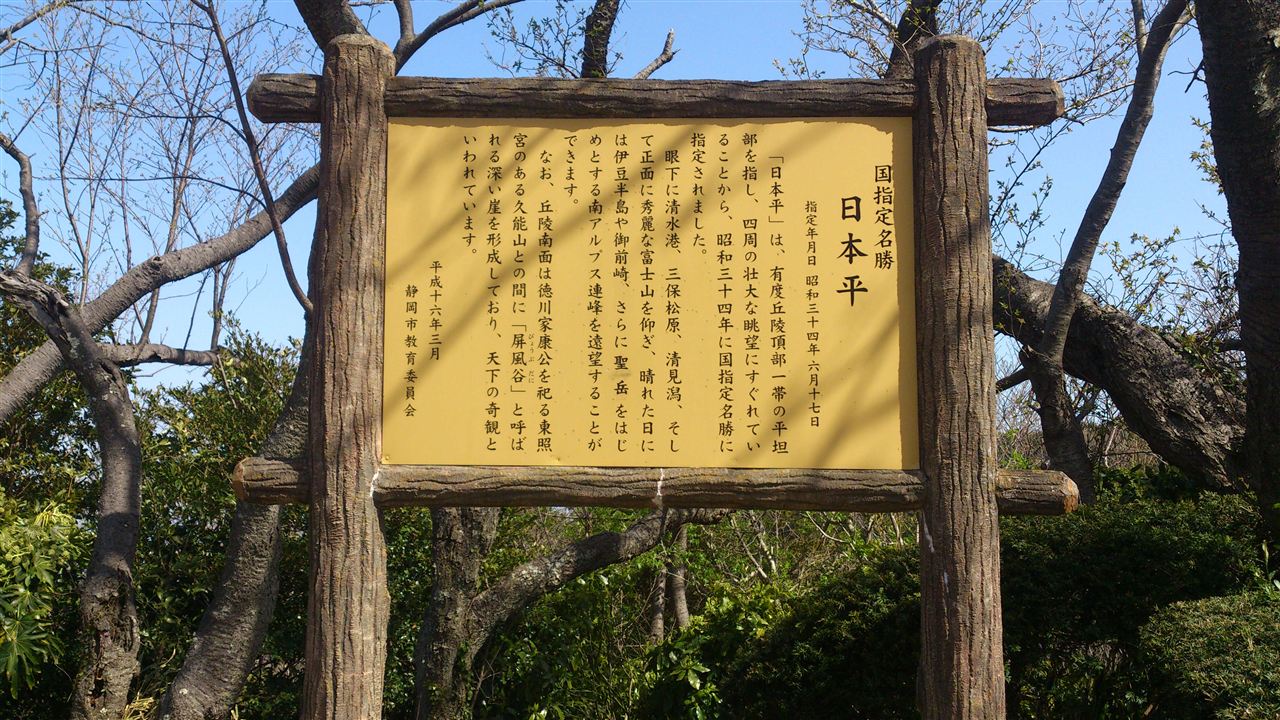 国指定名勝
日本平
指定年月日　昭和三十四年六月十七日
「日本平」は、有度丘陵頂部一帯の平坦
部を指し、四周の壮大な眺望にすぐれてい
ることから、昭和三十四年に国指定名勝に
指定されました。
眼下に清水港、三保松原、清見潟、そし
て正面に秀麗な富士山を仰ぎ、晴れた日に
は伊豆半島や御前崎、さらに聖岳をはじ
めとする南アルプス連峰を遠望することが
できます。
なお、丘陵南面は徳川家康公を祀る東照
宮のある久能山との間に「屏風谷」と呼ば
びょうぶだに
れる深い崖を形成しており、天下の奇観と
いわれています。
平成十六年三月
静岡市教育委員会